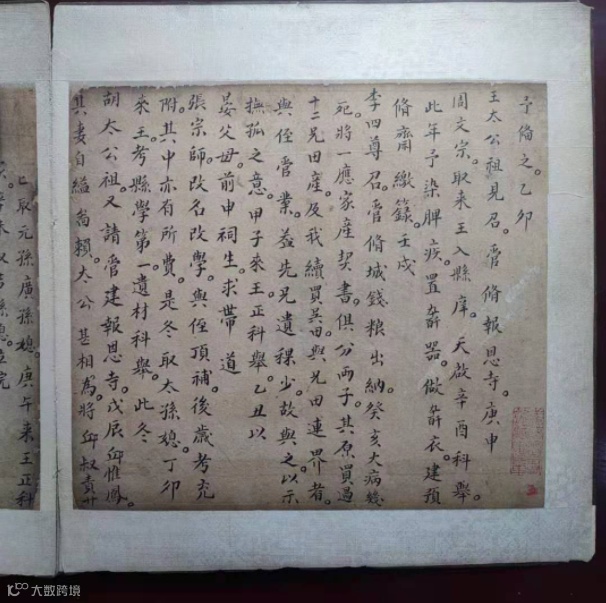 予倫之。乙卯
王太公祖見召。管脩報恩寺。庚申
周文宗。取來王入縣庠。天啟辛酉科舉。
此年予染脾疾。置斎器。做斎衣。建預
脩齋繳籙。壬戌
李四尊召。管脩城錢粮出納。癸亥大病幾
死。將一應家產契書。俱分两子。其原買過
十二兄田產。及我續買吴田與兄田連界者。
與侄管業。葢先兄遺稞少。故與之。以示
撫孤之意。甲子來王正科舉。乙丑以
晏父母。前申祠生。求带道
張宗師。改名改學。與侄頂補。後歲考充
附。其中亦有所費。是冬取太孫媳。丁卯
來王考縣學第一遺材科舉。此冬
胡太公祖。又請管建報恩寺。戊辰邱惟鳳。
其妻自縊啚賴。太公甚相為。將邱叔責廿
已取元孫廣孫媳。庚午來王正科
大数跨境